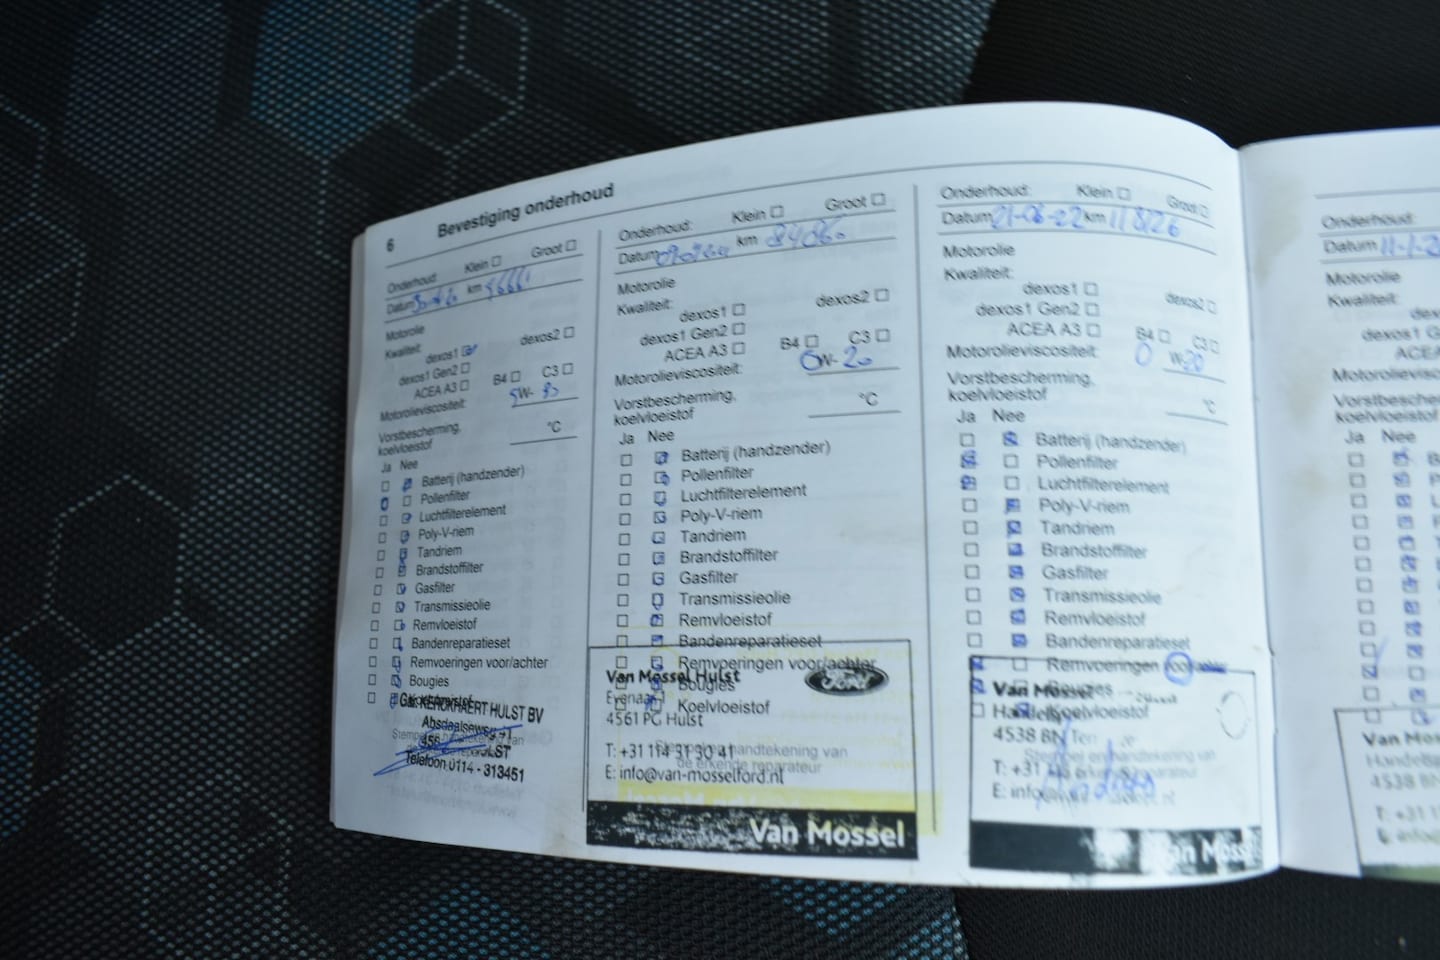 6 Bevestiging onderhoud
Onderhoud: Klein Groot
Datum km
Motorolie
Kwaliteit:
dexos1 dexos2
dexos1 Gen2
ACEA A3 B4 C3
Motorolieviscositeit: 5W-
Vorstbescherming,
koelvloeistof °C
Ja Nee
Batterij (handzender)
Pollenfilter
Luchtfilterelement
Poly-V-riem
Tandriem
Brandstoffilter
Gasfilter
Transmissieolie
Remvloeistof
Bandenreparatieset
Remvoeringen voor/achter
Bougies
Koelvloeistof
KERCKHAERT HULST BV
Absdaalseweg
Stempel en handtekening van
Telefoon 0114 - 313451
Onderhoud: Klein Groot
Datum km
Motorolie
Kwaliteit:
dexos1 dexos2
dexos1 Gen2
ACEA A3 B4 C3
Motorolieviscositeit: 0W-20
Vorstbescherming,
koelvloeistof °C
Ja Nee
Batterij (handzender)
Pollenfilter
Luchtfilterelement
Poly-V-riem
Tandriem
Brandstoffilter
Gasfilter
Transmissieolie
Remvloeistof
Bandenreparatieset
Remvoeringen voor/achter
Bougies
Koelvloeistof
Van Mossel Hulst
Ford
4561 PG Hulst
Stempel en handtekening van
de erkende reparateur
T: +31 114 31 30 41
E: info@van-mosselford.nl
Van Mossel
Onderhoud: Klein Groot
Datum 21-06-22 km 118126
Motorolie
Kwaliteit:
dexos1 dexos2
dexos1 Gen2
ACEA A3 B4 C3
Motorolieviscositeit: 0 W-20
Vorstbescherming,
koelvloeistof °C
Ja Nee
Batterij (handzender)
Pollenfilter
Luchtfilterelement
Poly-V-riem
Tandriem
Brandstoffilter
Gasfilter
Transmissieolie
Remvloeistof
Bandenreparatieset
Remvoeringen voor/achter
Bougies
Koelvloeistof
Van Mossel
4538 BN
Stempel en handtekening van
T: +31
E: info
Van Mossel
Onderhoud:
Datum
Motorolie
Kwaliteit:
dexos1 G
ACEA
Motorolieviscosite
Vorstbescherm
koelvloeistof
Ja Nee
Van Mos
4538 B